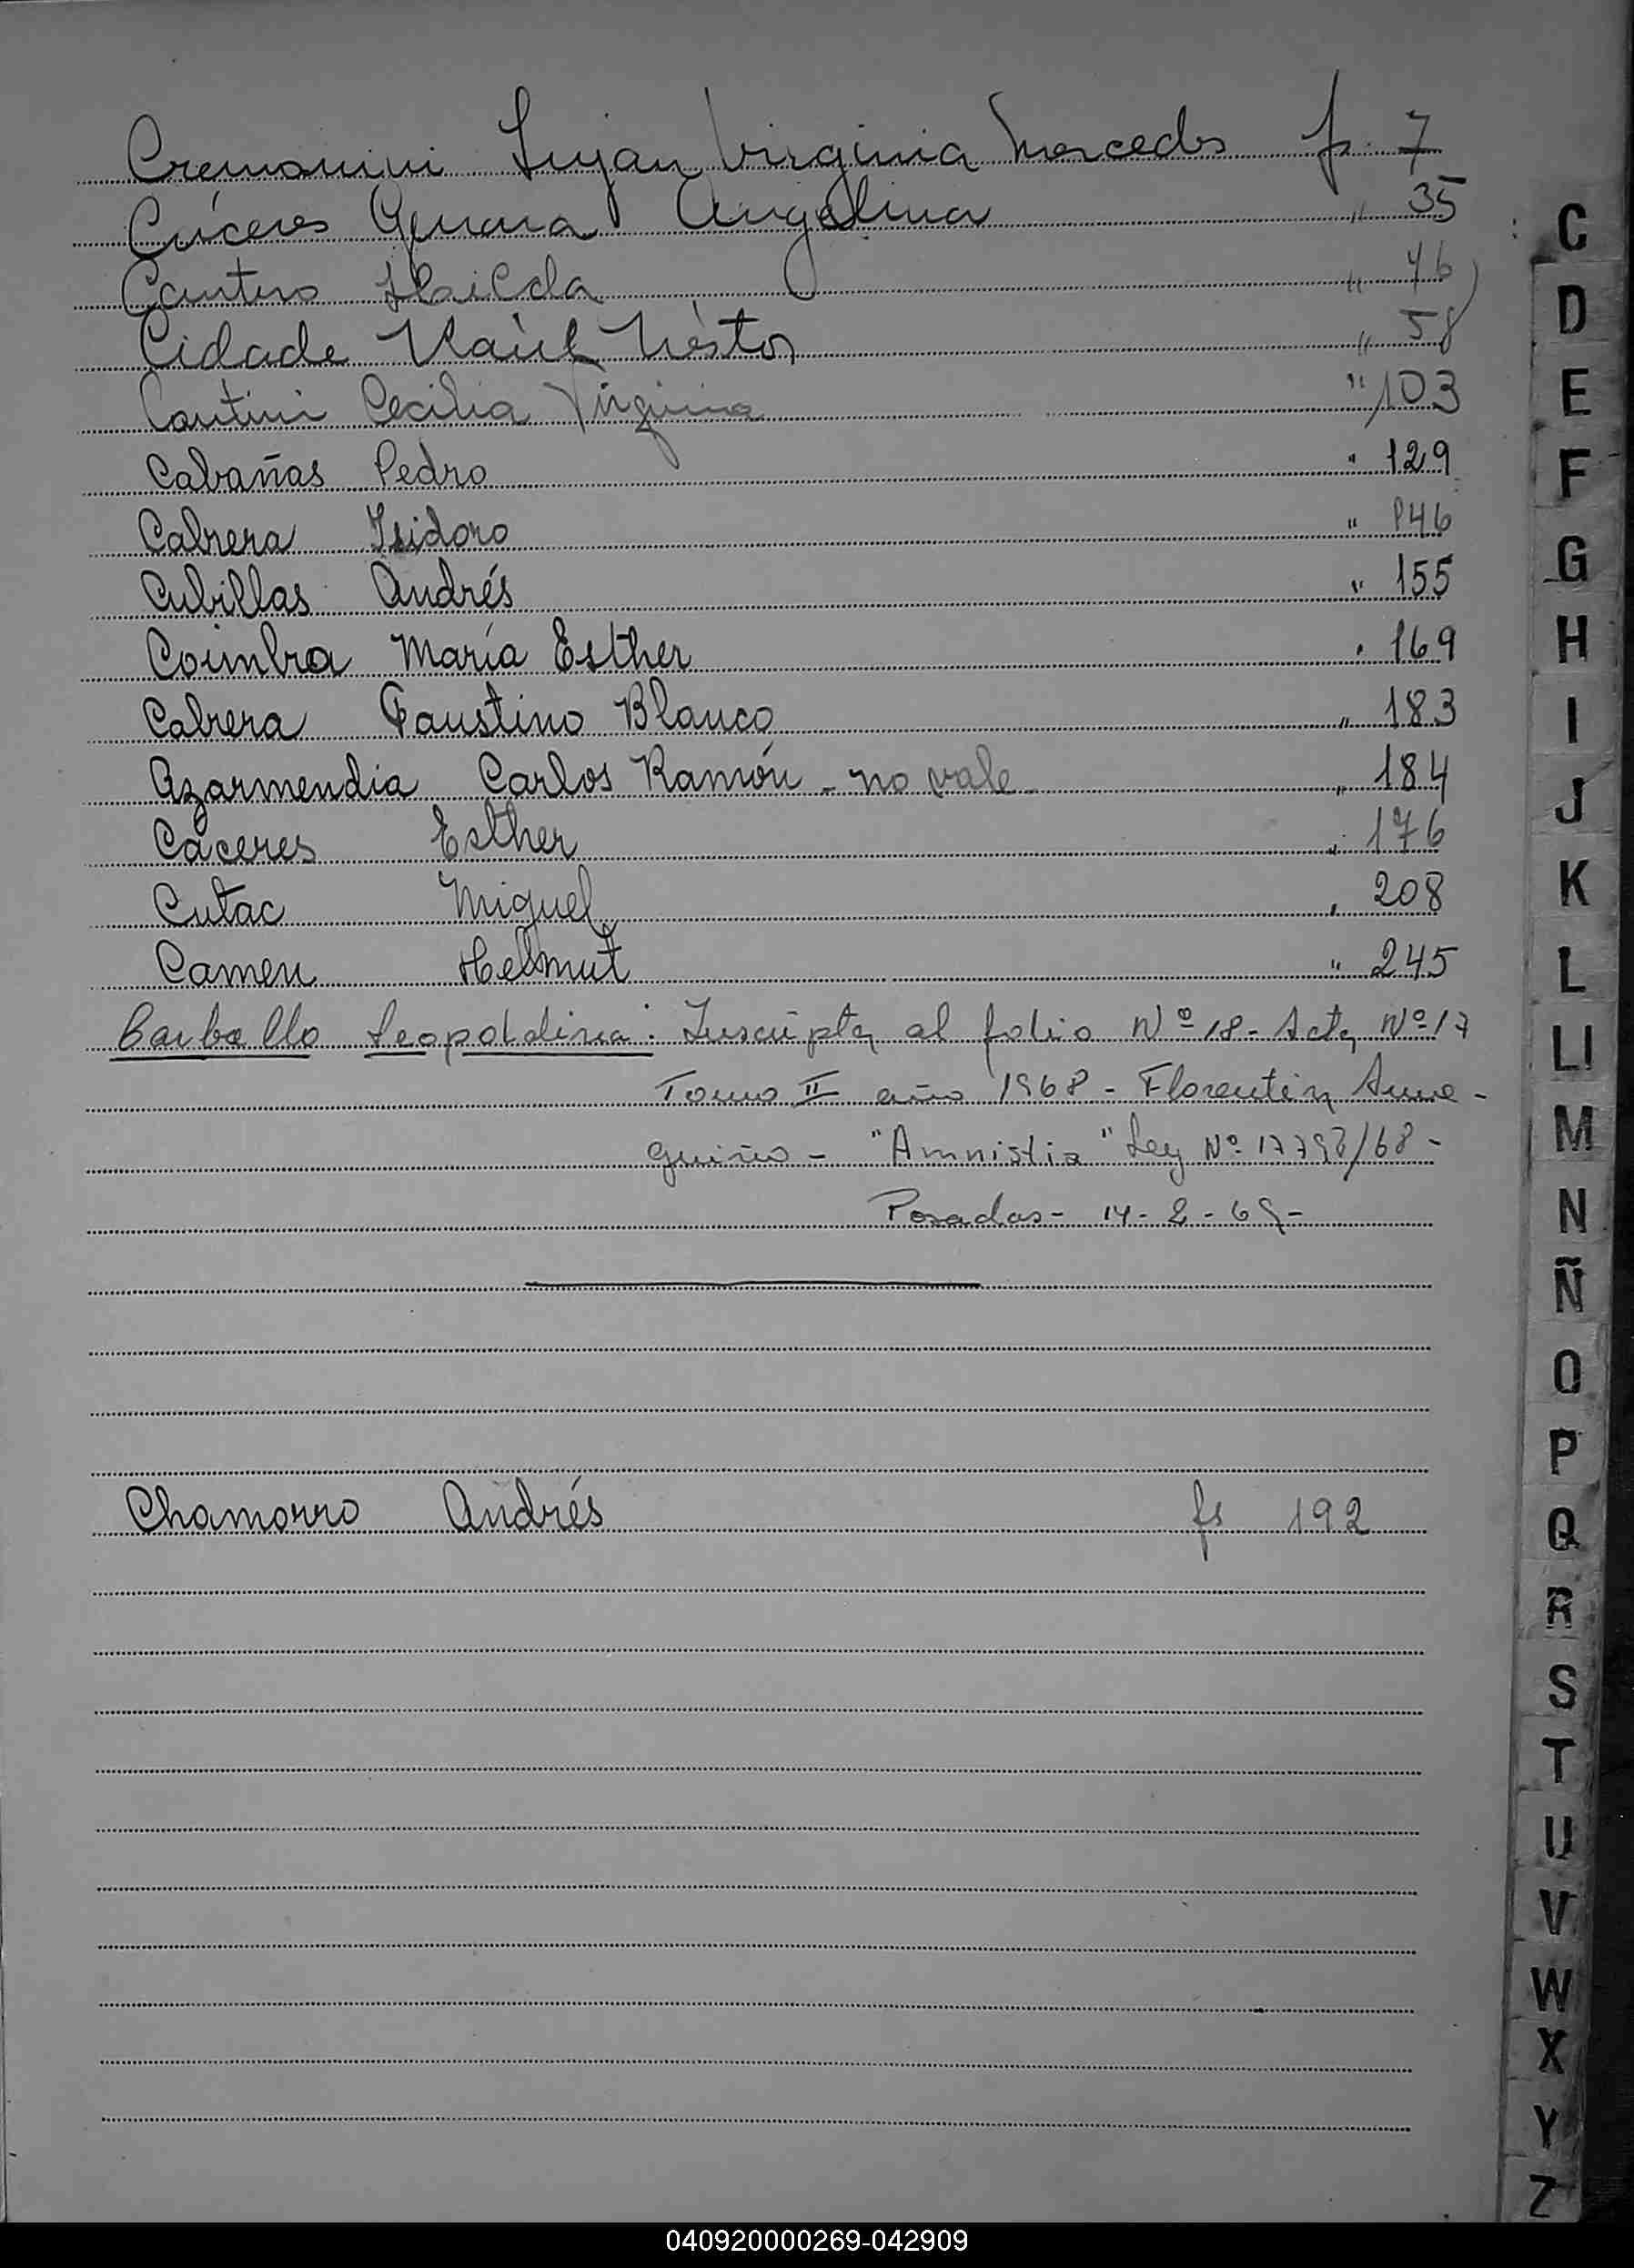 Cremonini Lujan Virginia Mercedes f. 7
Cáceres Genara Angelina " 35
Cantero Hilda " 46
Cidade Raúl Néstor " 58
Contini Cecilia Virginia " 103
Cabañas Pedro " 129
Cabrera Isidoro " 146
Cubillas Andrés " 155
Coimbra María Esther " 169
Cabrera Faustino Blanco " 183
Azarmendia Carlos Ramón - no vale - " 184
Cáceres Esther " 176
Cutac Miguel " 208
Camen Helmut " 245
Carballo Leopoldina: Inscripta al folio Nº 18 - Acta Nº 17
Tomo II año 1968 - Florentin Ame-
guino - "Amnistia" Ley Nº
Posadas - 14-2-69-
Chamorro Andrés fs 192
C
D
E
F
G
H
I
J
K
L
Ll
M
N
Ñ
O
P
Q
R
S
T
U
V
W
X
Y
Z
040920000269-042909